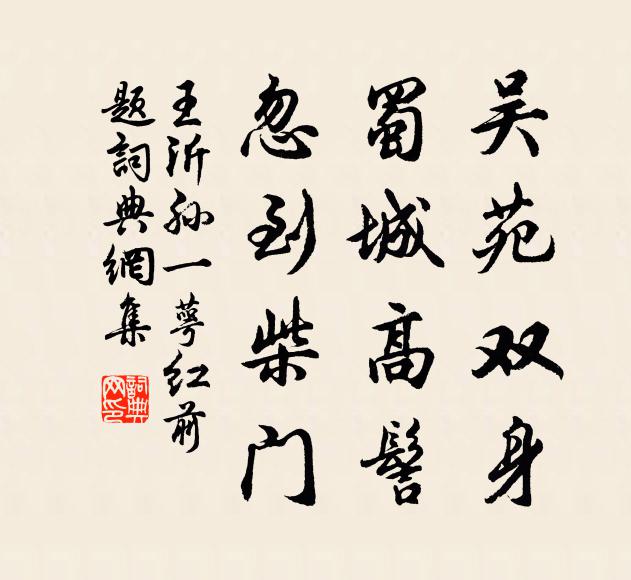 吴苑双身
蜀城高髻
忽到柴门
王沂孙一萼红前
题词典网集
詞典网印